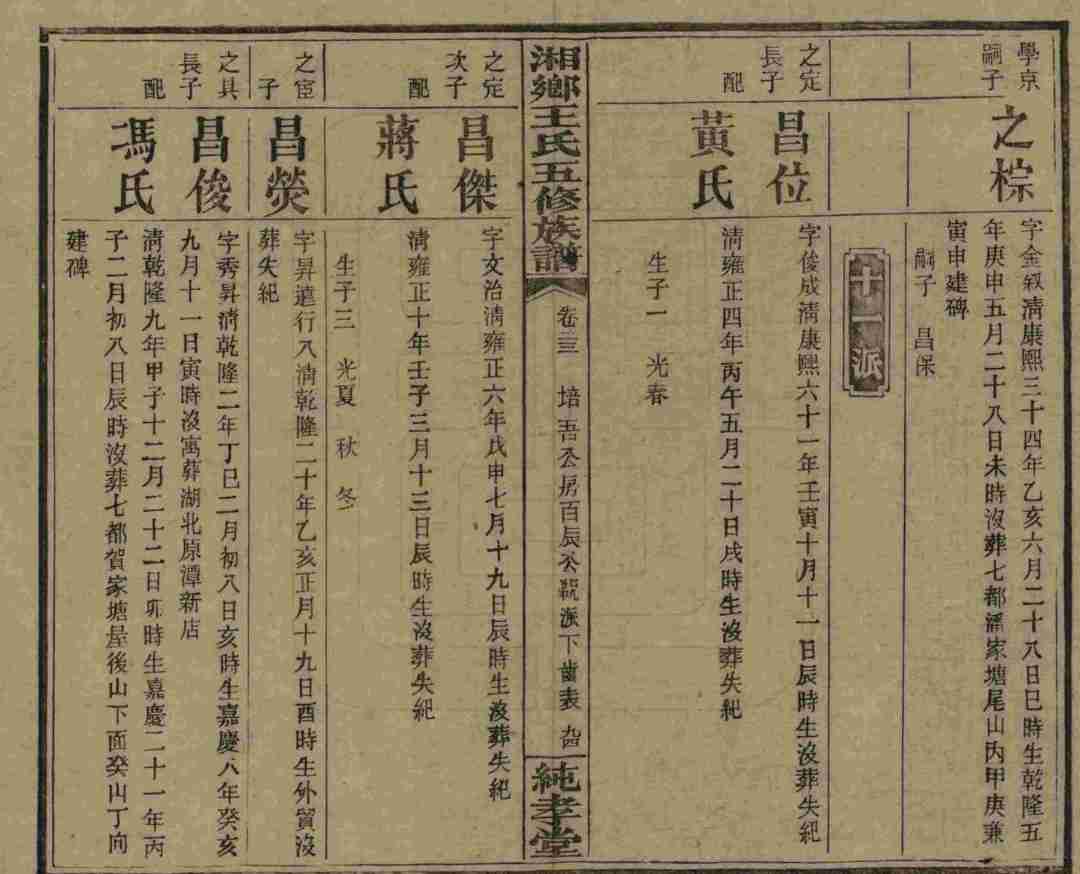 學京
嗣子
之棕
字金級淸康熙三十四年乙亥六月二十八日巳時生乾隆五
年庚申五月二十八日未時沒葬七都潘家塘尾山丙甲庚兼
寅申建碑
嗣子 昌保
十一派
之定
長子
昌位
字俊成淸康熙六十一年壬寅十月十一日辰時生沒葬失紀
配
黃氏
淸雍正四年丙午五月二十日戌時生沒葬失紀
生子一 光春
湘鄉王氏五修族譜
卷三 培吾公房百辰公派下齒表
純孝堂
之定
次子
昌傑
字文治淸雍正六年戊申七月十九日辰時生沒葬失紀
配
蔣氏
淸雍正十年壬子三月十三日辰時生沒葬失紀
生子三 光夏 秋 冬
之宦
子
昌熒
字昇遠行八淸乾隆二十年乙亥正月十九日酉時生外貿沒
葬失紀
之具
長子
昌俊
字秀昇淸乾隆二年丁巳二月初八日亥時生嘉慶八年癸亥
九月十一日寅時沒寓葬湖北原潭新店
配
馮氏
淸乾隆九年甲子十二月二十二日卯時生嘉慶二十一年丙
子二月初八日辰時沒葬七都賀家塘屋後山下面癸山丁向
建碑